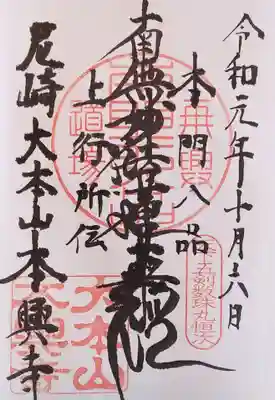 令和元年十月十六日
本門八品
南無妙法蓮華経
上行所伝
尼崎 大本山 本興寺
大本山
道場
数珠丸恒次